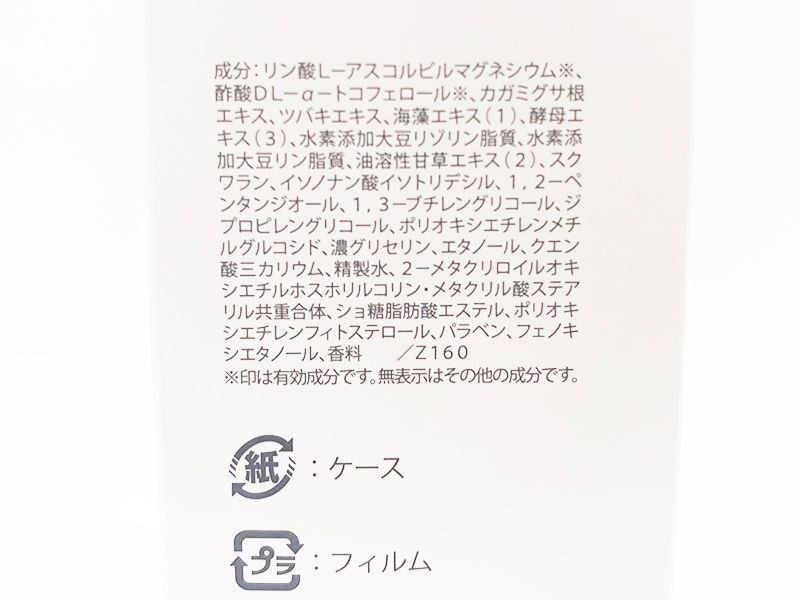 成分：リン酸L－アスコルビルマグネシウム※、
酢酸DL－α－トコフェロール※、カガミグサ根
エキス、ツバキエキス、海藻エキス（1）、酵母エ
キス（3）、水素添加大豆リゾリン脂質、水素添
加大豆リン脂質、油溶性甘草エキス（2）、スク
ワラン、イソノナン酸イソトリデシル、1，2－ペ
ンタンジオール、1，3－ブチレングリコール、ジ
プロピレングリコール、ポリオキシエチレンメチ
ルグルコシド、濃グリセリン、エタノール、クエン
酸三カリウム、精製水、2－メタクリロイルオキ
シエチルホスホリルコリン・メタクリル酸ステア
リル共重合体、ショ糖脂肪酸エステル、ポリオキ
シエチレンフィトステロール、パラベン、フェノキ
シエタノール、香料　／Z160
※印は有効成分です。無表示はその他の成分です。
紙：ケース
プラ：フィルム